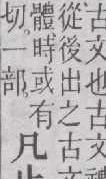 古文也古文
從後出之古文
體時或有
切一部凡